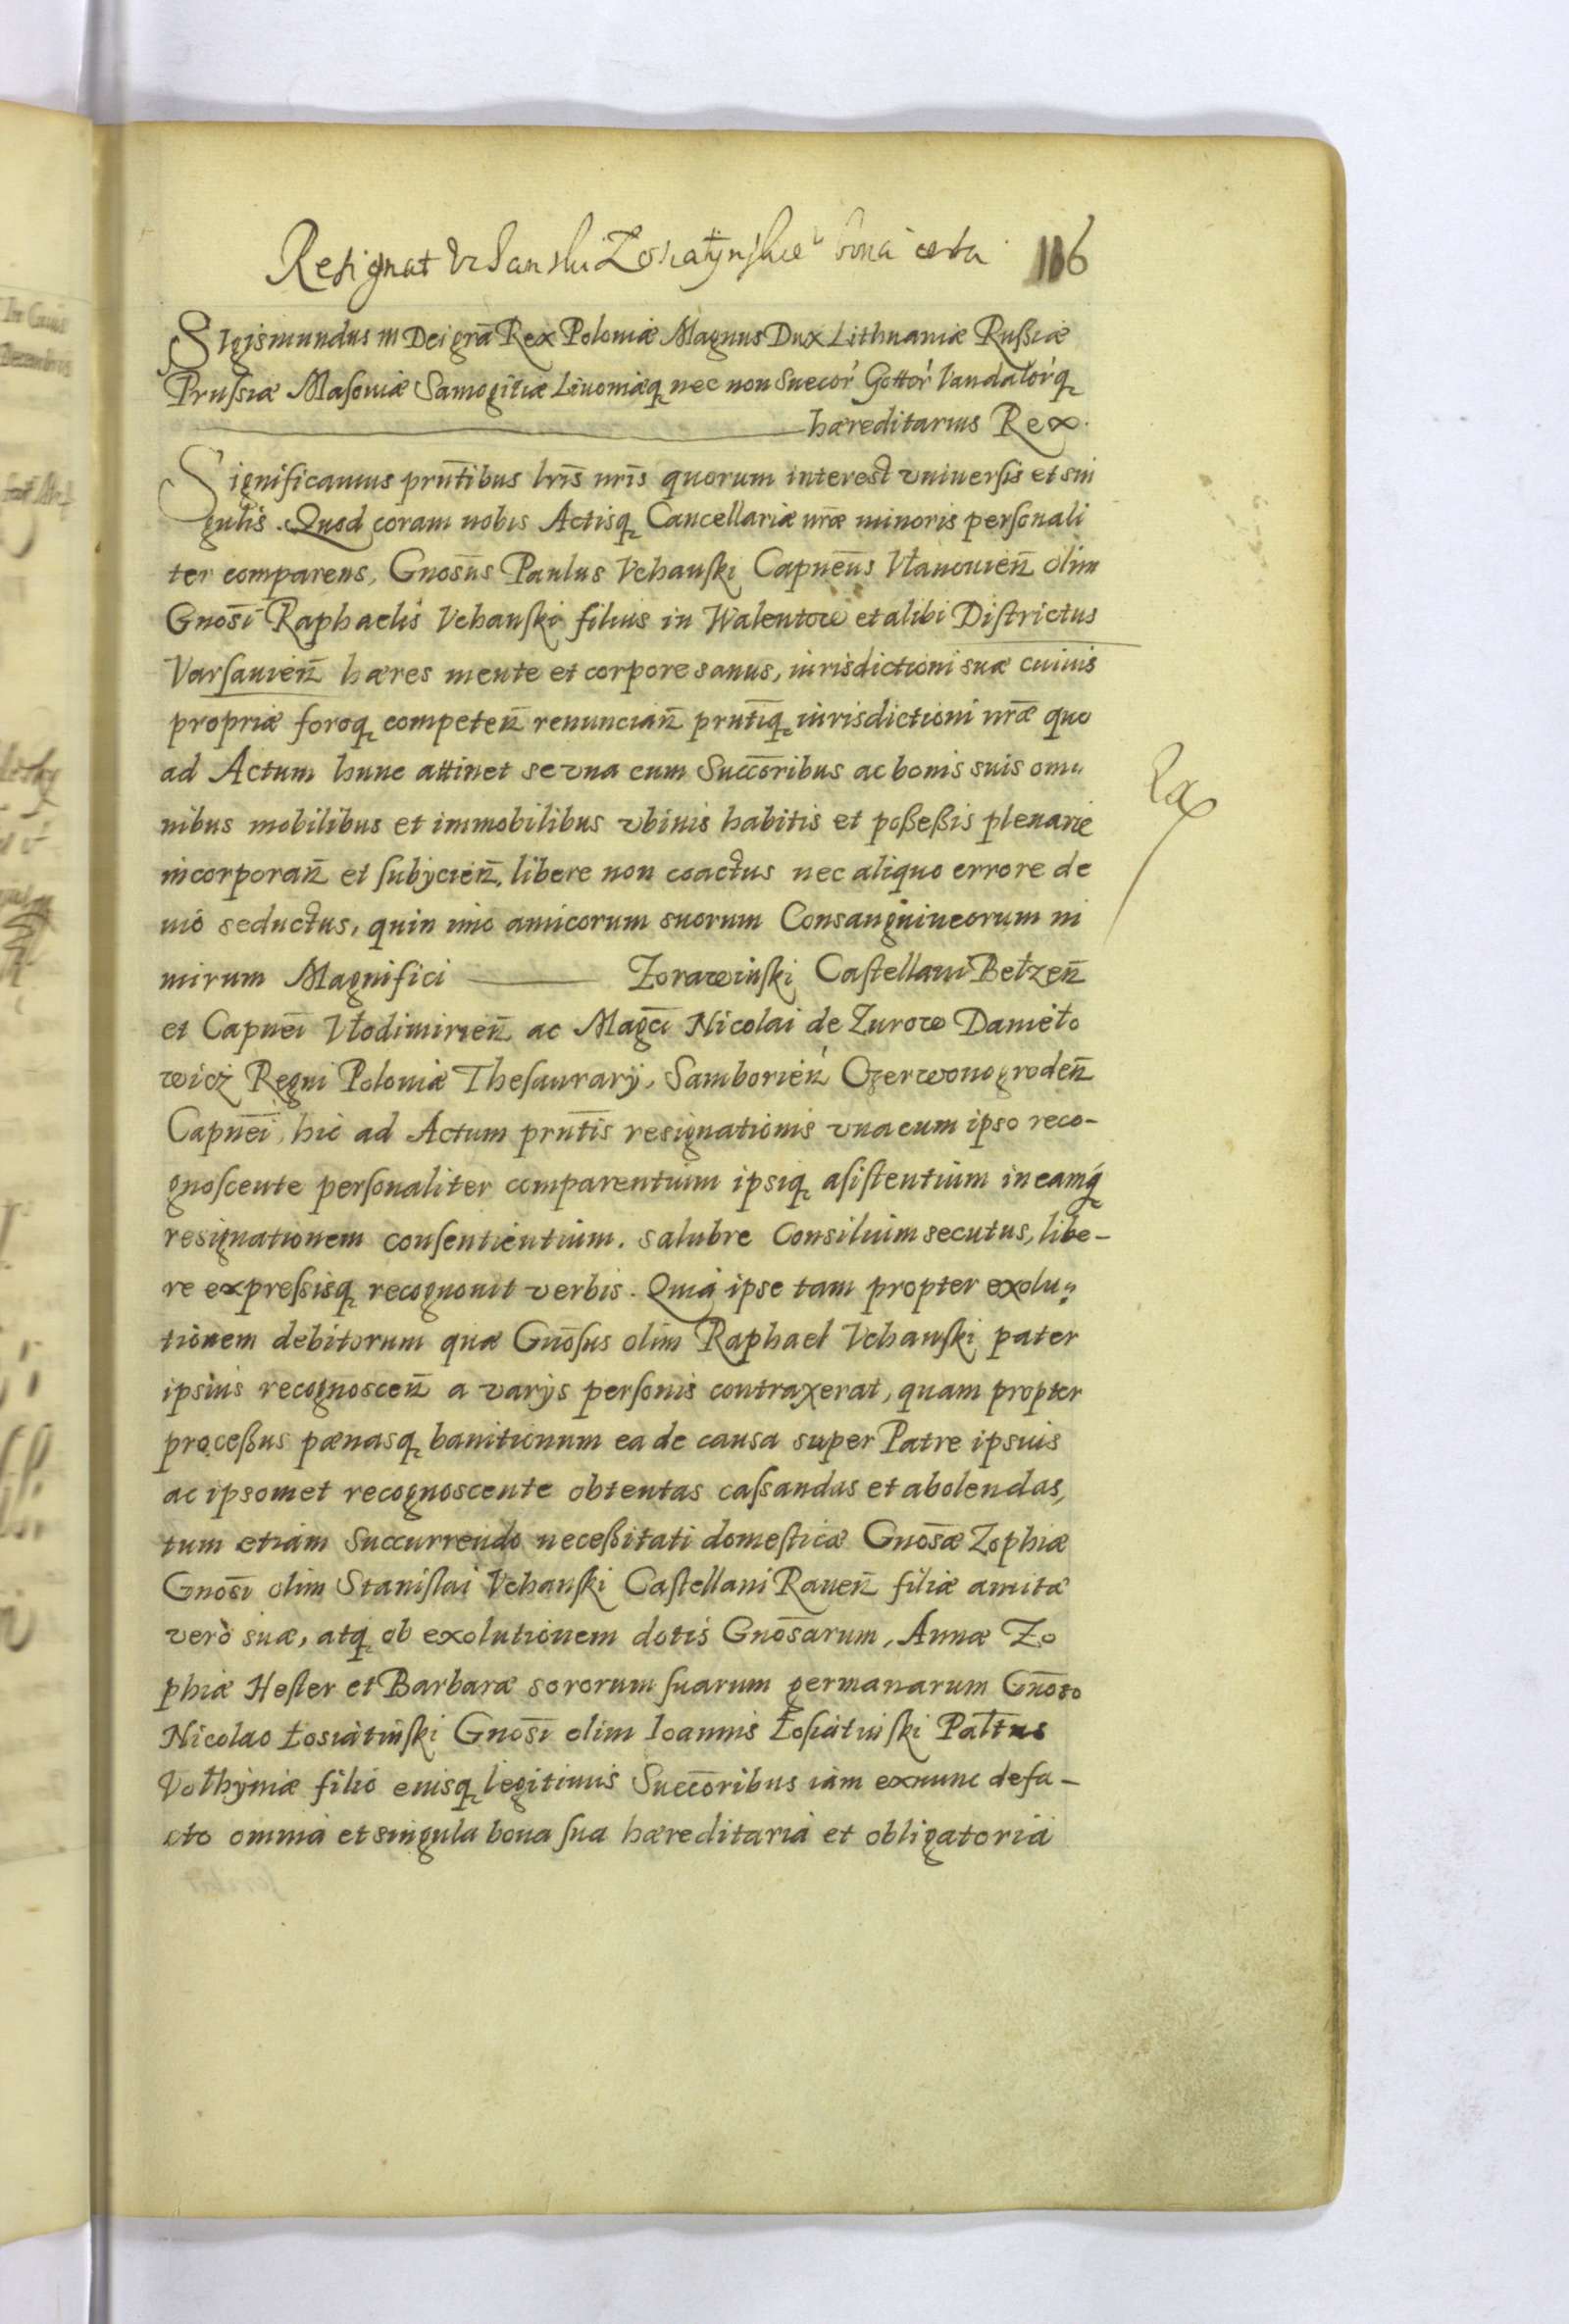 Resignat Vchanski Łosiatynskie bona certa 106
Sigismundus III Dei gr̃a Rex Poloniæ Magnus Dux Lithuaniæ Rußiæ
Prussiæ Masoviæ Samogitiæ Livoniæq nec non Suecor Gottor Vandalorq
hæreditarius Rex.
Significamus prñtibus lr̃is nr̃is quorum interest vniversis et sin
gulis. Quod coram nobis Actisq Cancellariæ nr̃æ minoris personali
ter comparens, Gnosus̃ Paulus Vchanski Capneũs Vłanovien̄ olim
Gnosĩ Raphaelis Vchanski filius in Walentow et alibi Districtus
Varsavien̄ hæres mente et corpore sanus, iurisdictioni suæ cuivis
propriæ foroq competen̄ renuncian̄ prñtiq iurisdictioni nr̃æ quo
ad Actum hunc attinet se vna cum Succōribus ac bonis suis om„
nibus mobilibus et immobilibus vbivis habitis et poßeßis plenarie
incorporan̄ et subijcien̄, libere non coactus nec aliquo errore de
vio seductus, quin imo amicorum suorum Consanguineorum ni
mirum Magnifici Zorawinski Castellani Bełzen̄
et Capneĩ Vłodimirien̄ ac Magc̃i Nicolai de Zurow Danieło
wicz Regni Poloniæ Thesaurarij, Samborien̄ Czerwonogroden̄
Capneĩ, hic ad Actum prñtis resignationis vna cum ipso reco-
gnoscente personaliter comparentium ipsiq asistentium in eamq
resignationem consentientium. salubre Consilium secutus, libe-
re expressisq recognovit verbis. Quia ipse tam propter exolu„
tionem debitorum quæ Gnōsus olim Raphael Vchanski pater
ipsius recognoscen̄ a varijs personis contraxerat, quam propter
proceßus pænasq banitionum ea de causa super Patre ipsius
ac ipsomet recognoscente obtentas cassandas et abolendas,
tum etiam Succurrendo neceßitati domesticæ Gnosæ̃ Zophiæ
Gnosĩ olim Stanislai Vchanski Castellani Raven̄ filiæ amitæ
verò suæ, atq ob exolutionem dotis Gnosãrum, Annæ Zo
phiæ Hester et Barbaræ sororum suarum germanarum Gnōso
Nicolao Łosiatinski Gnosĩ olim Ioannis Łosiatinski Palt̃nus
Vołhyniæ filio eiusq legitimis Succōribus iam exnunc de fa-
cto omnia et singula bona sua hæreditaria et obligatoria